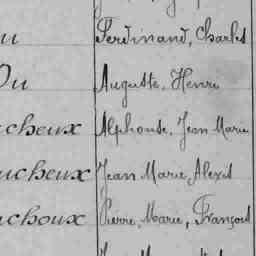 u Ferdinand, Charles
Ou Auguste, Henri
cheux Alphonse, Jean Marie
ucheux Jean Marie, Alexis
choux Pierre, Marie, François